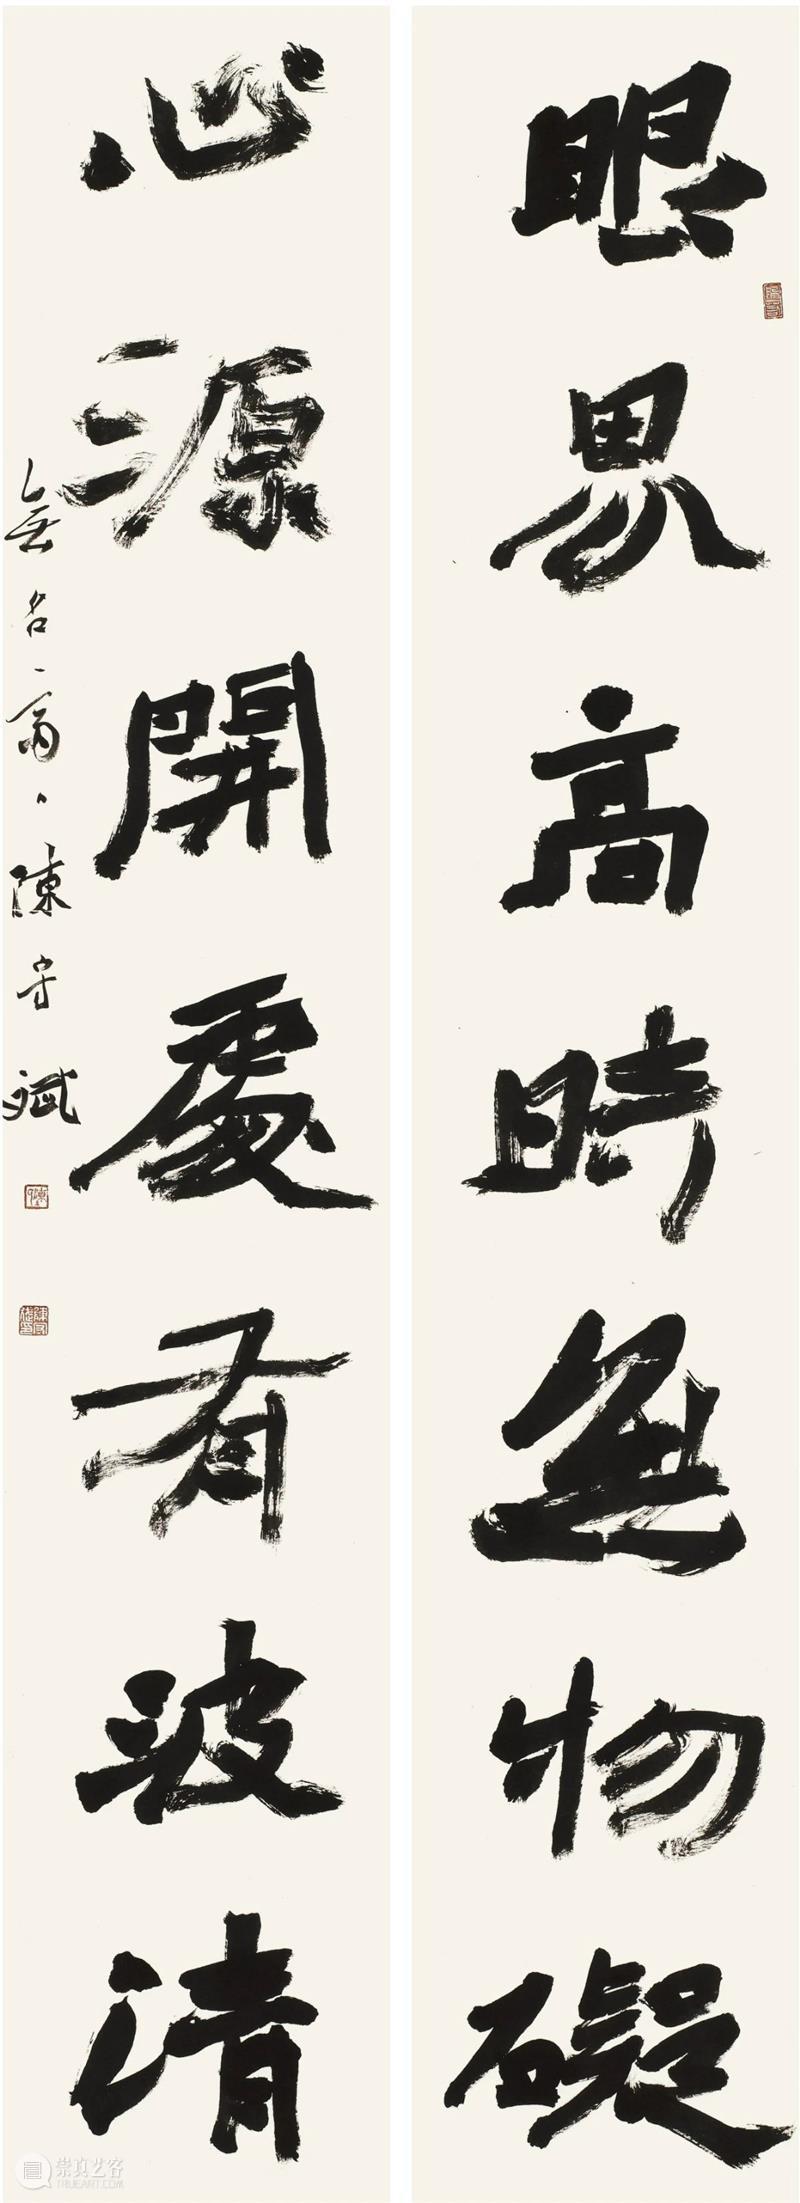 眼界高時無物礙
心源開處有波清
陳國斌
崇真艺客
TRUEART.COM